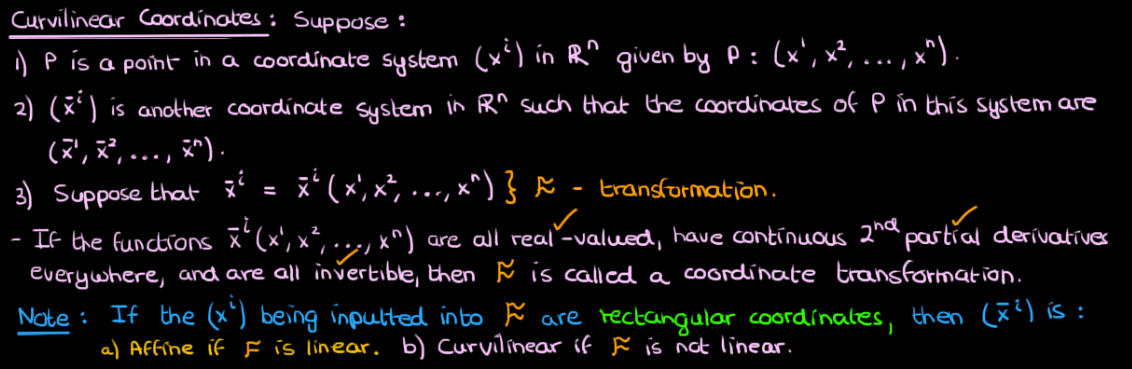 Curvilinear Coordinates: Suppose:
1) P is a point in a coordinate system (xⁱ) in ℝⁿ given by P: (x¹, x², ..., xⁿ).
2) (x̄ⁱ) is another coordinate system in ℝⁿ such that the coordinates of P in this system are
(x̄¹, x̄², ..., x̄ⁿ).
3) Suppose that x̄ⁱ = x̄ⁱ(x¹, x², ..., xⁿ) } - transformation.
- If the functions x̄ⁱ(x¹, x², ..., xⁿ) are all real-valued, have continuous 2ⁿᵈ partial derivatives
everywhere, and are all invertible, then is called a coordinate transformation.
Note: If the (xⁱ) being inputted into are rectangular coordinates, then (x̄ⁱ) is:
a) Affine if F is linear. b) Curvilinear if is not linear.